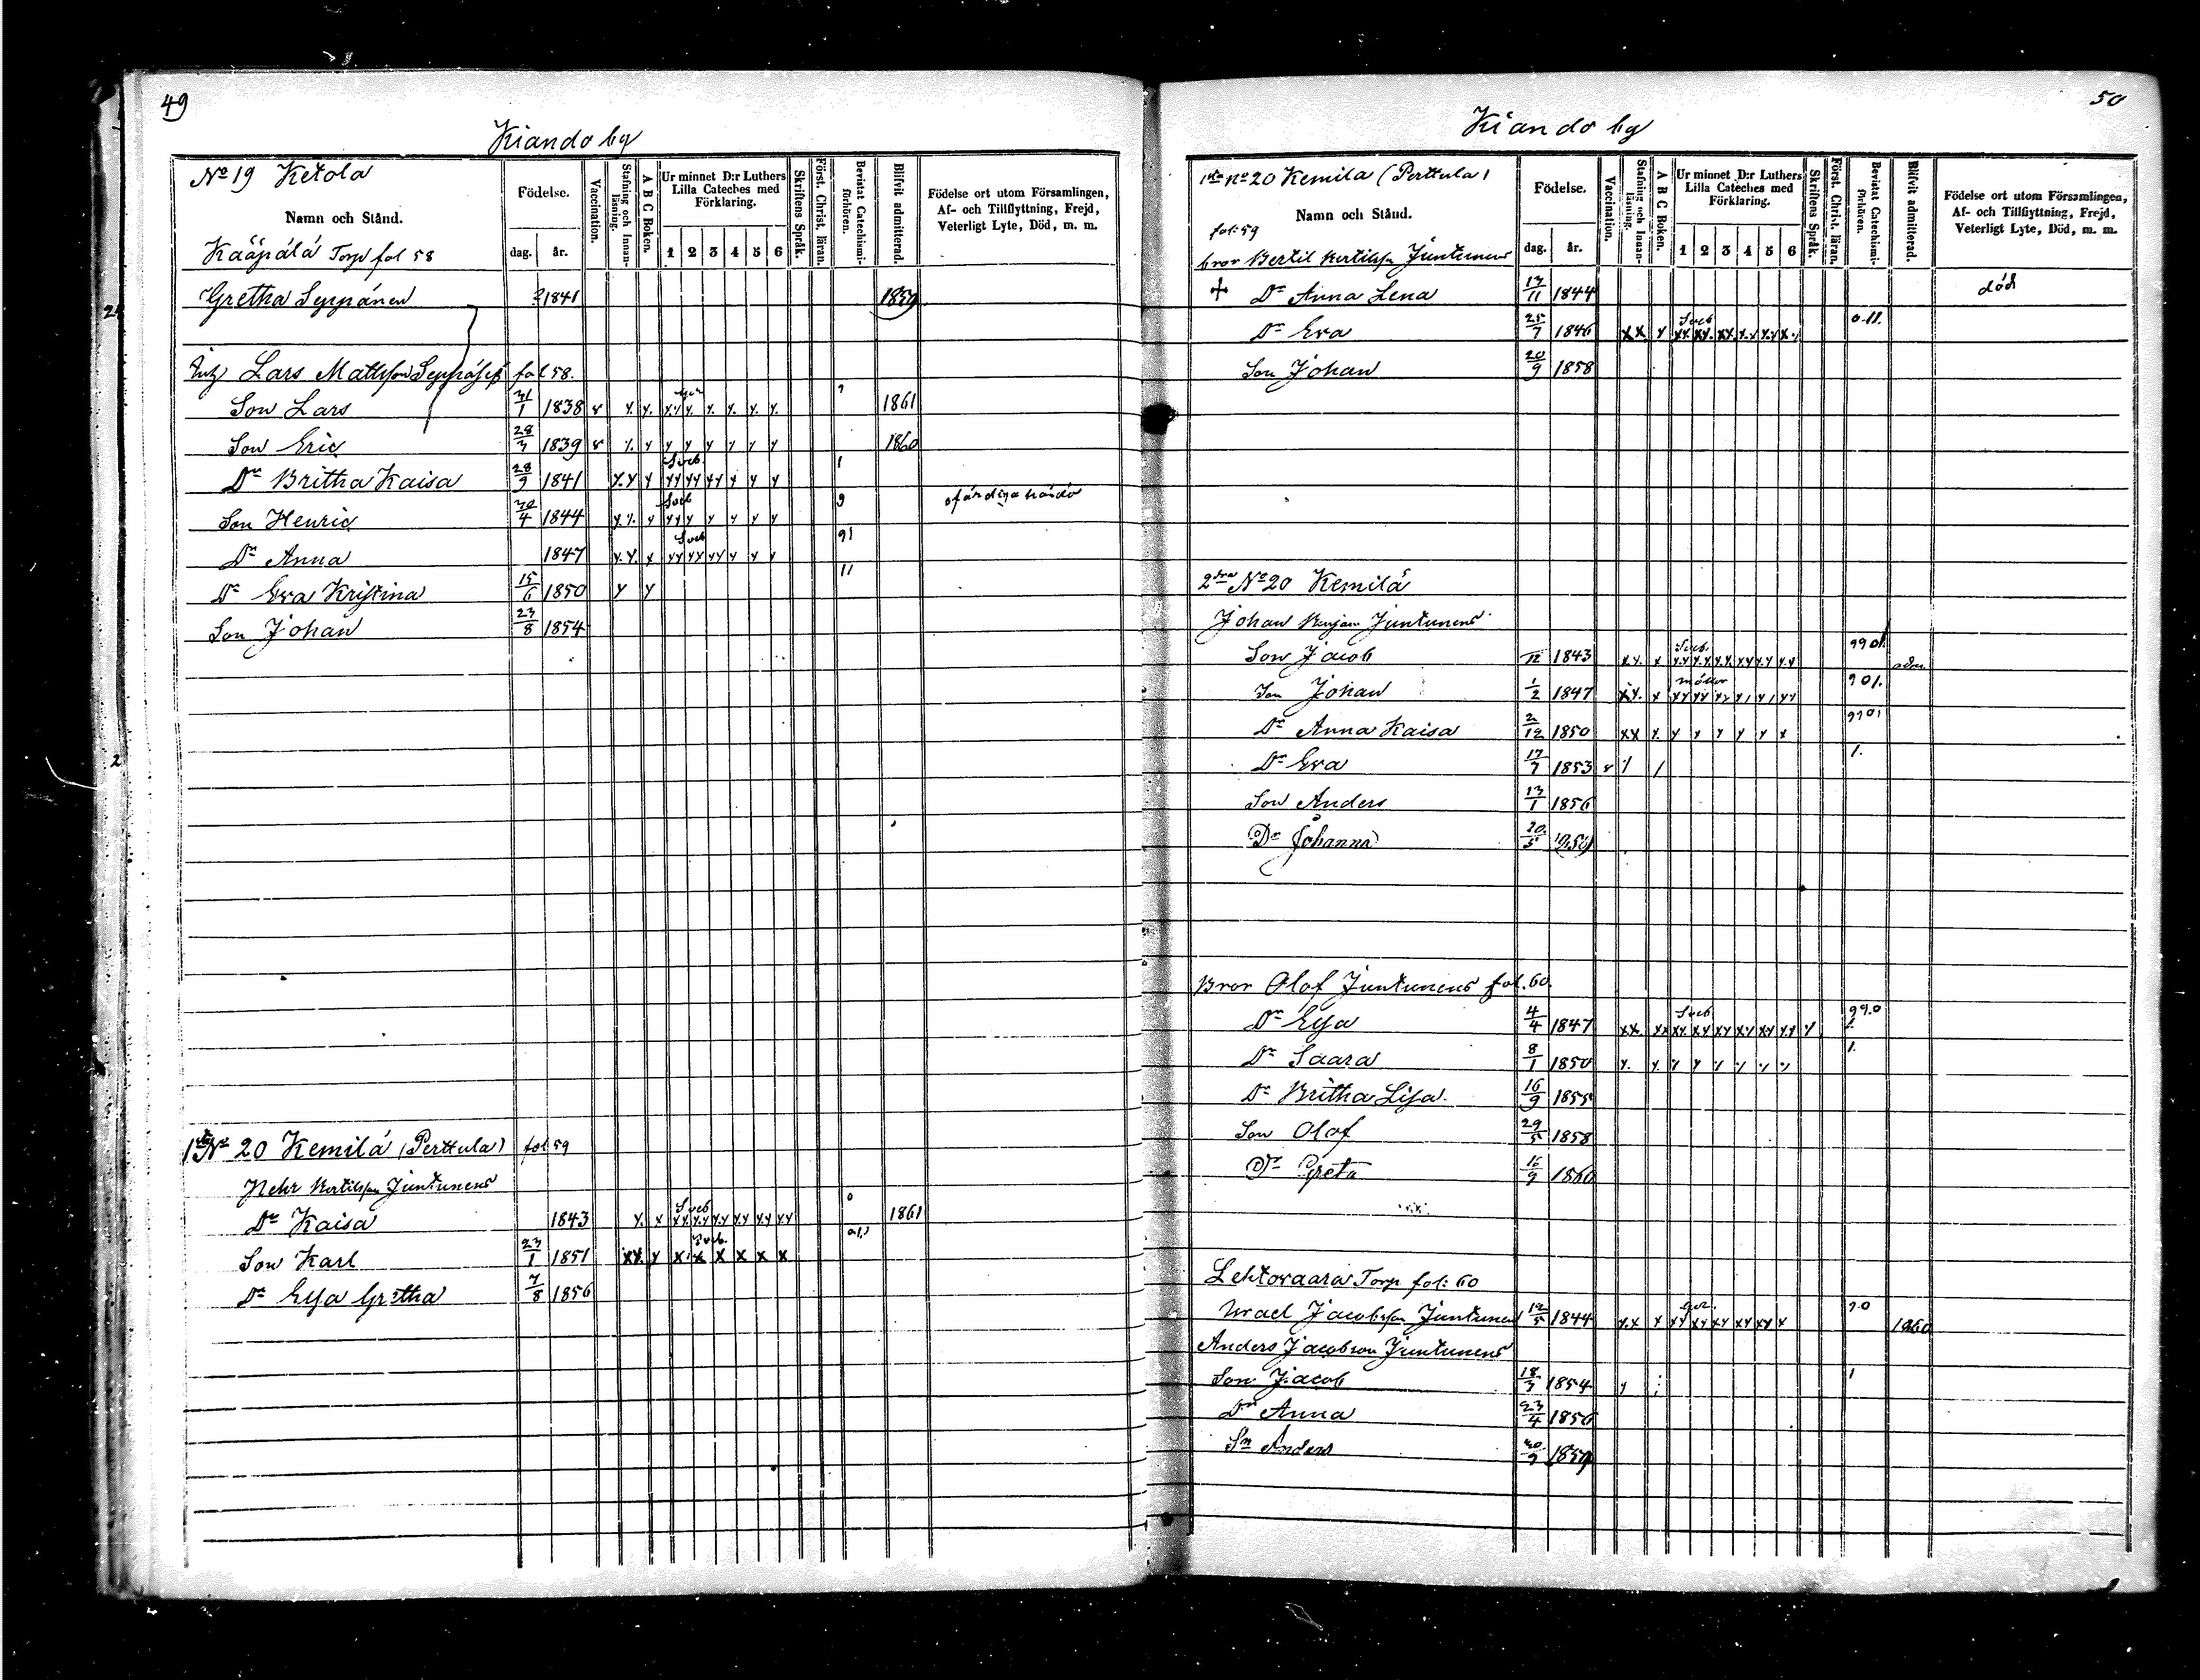 49
Kiando by
No 19 Ketola
Namn och Stånd.
Födelse.
dag. år.
Vaccination.
Stafning och Innanläsning.
A B C Boken.
Ur minnet D:r Luthers Lilla Cateches med Förklaring.
1 2 3 4 5 6
Skriftens Språk.
Först. Christ. läran.
Bevistat Catechismiförhören.
Blifvit admitterad.
Födelse ort utom Församlingen, Af- och Tillflyttning, Frejd, Veterligt Lyte, Död, m. m.
Kääpälä Torp fol 58
Gretha Seppänen ? 1841 1859
Lars Mattsson fol 58.
Son Lars 31/1 1838 1861
Son Eric 28/3 1839 1860
Dr Britha Kaisa 28/9 1841 Sveb. 1
Son Henric 30/4 1844 Sveb 9
Dr Anna 1847 Sveb 91
Dr Eva Kristina 15/6 1850 11
Son Johan 23/8 1854
No 20 Kemilä (Perttula) fol 59
Bertilsson Juntunens
Dr Kaisa 1843 Sveb 0 1861
Son Karl 23/1 1851 Sveb.
Dr Elsa Gretha 7/8 1856
50
Kiando by
No 20 Kemilä (Perttula)
Namn och Stånd.
Födelse.
dag. år.
Vaccination.
Stafning och Innanläsning.
A B C Boken.
Ur minnet D:r Luthers Lilla Cateches med Förklaring.
1 2 3 4 5 6
Skriftens Språk.
Först. Christ. läran.
Bevistat Catechismiförhören.
Blifvit admitterad.
Födelse ort utom Församlingen, Af- och Tillflyttning, Frejd, Veterligt Lyte, Död, m. m.
fol: 59
bror Bertil Bertilsson Juntunens
+ Dr Anna Lena 1844 död
Dr Eva 25/7 1846 Sveb 0.11.
Son Johan 20/9 1858
2dra No 20 Kemilä
Johan Juntunens
Son Jacob /12 1843 Sveb. 990 adm
Son Johan 1/2 1847 901.
Dr Anna Kaisa 2/12 1850
Dr Eva 1853 1.
Son Anders 13/1 1856
Dr Johanna
Bror Olof Juntunens fol. 60.
Dr Elsa 4/4 1847 Sveb. 99.0
Dr Saara 8/1 1850 1.
Dr Britha Lisa 16/9 1855
Son Olof 29/5 1858
Dr Greta 16/9 1860
Lehtovaara Torp fol: 60
Israel Jacobsson Juntunen 12/5 1844 9.0 1860
Anders Jacobson Juntunens
Son Jacob 18/3 1854 1
Dr Anna 23/4 1856
Sn Anders 1859